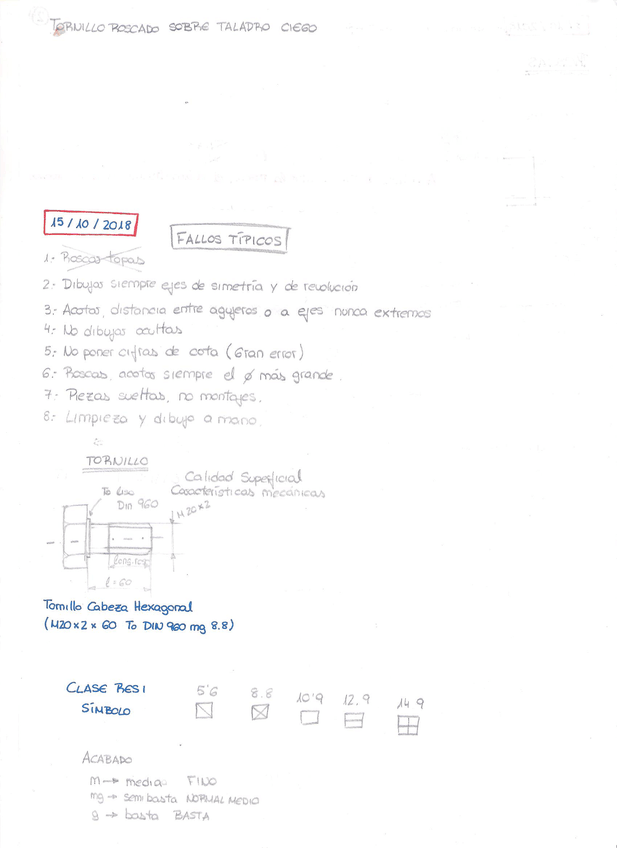 TORNILLO ROSCADO SOBRE TALADRO CIEGO
15/10/2018
FALLOS TÍPICOS
1.- Roscas topas
2.- Dibujar siempre ejes de simetría y de revolución
3.- Acotar, distancia entre agujeros o a ejes nunca extremos
4.- No dibujar ocultas
5.- No poner cifras de cota (Gran error)
6.- Roscas, acotar siempre el ø más grande.
7.- Piezas sueltas, no montajes.
8.- Limpieza y dibujo a mano.
TORNILLO
Calidad Superficial
Características mecánicas
To liso
Din 960
M20x2
long. rosc
l=60
Tornillo Cabeza Hexagonal
(M20x2x60 To DIN 960 mg 8.8)
CLASE RESI 5'6 8.8 10'9 12.9 14 9
SÍMBOLO
ACABADO
m → media FINO
mg → semibasta NORMAL MEDIO
g → basta BASTA